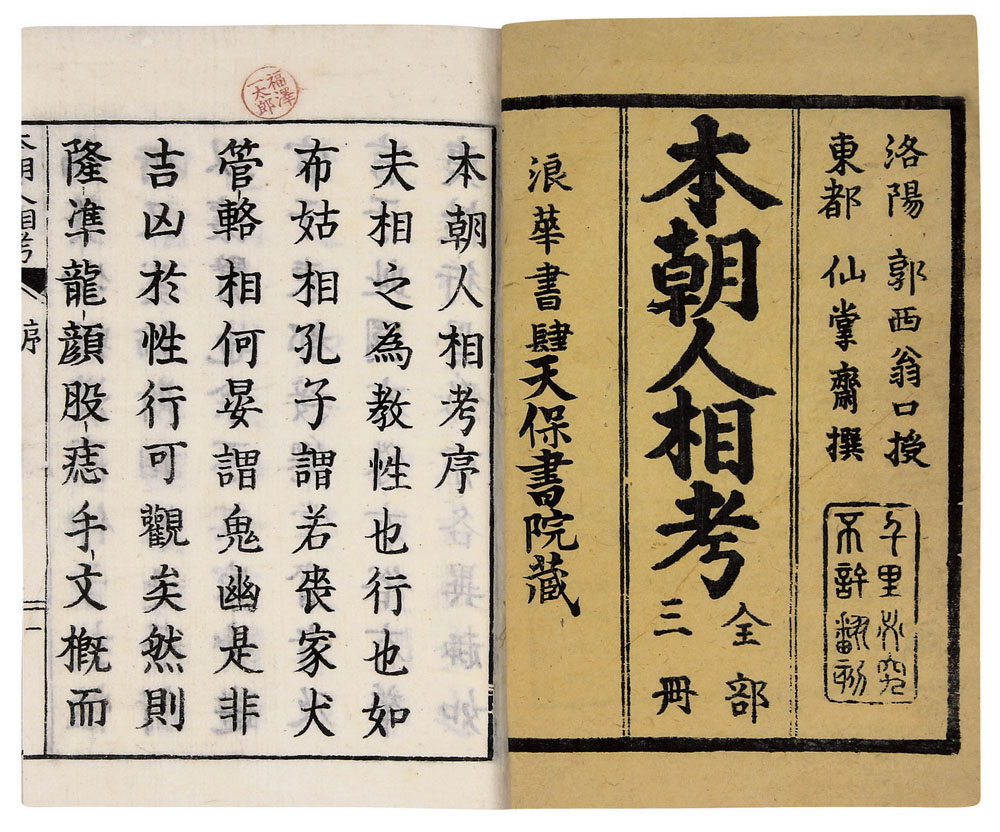 洛陽 郭西翁口授
東都 仙掌齋撰
千里必究
不許翻刻
本朝人相考
全部
三冊
浪華書肆天保書院蔵
福澤
一太郎
本朝人相考序
夫相之為教性也行也如
布姑相孔子謂若喪家犬
管輅相何晏謂鬼幽是非
吉凶於性行可觀矣然則
隆準龍顔股痣手文概而
序